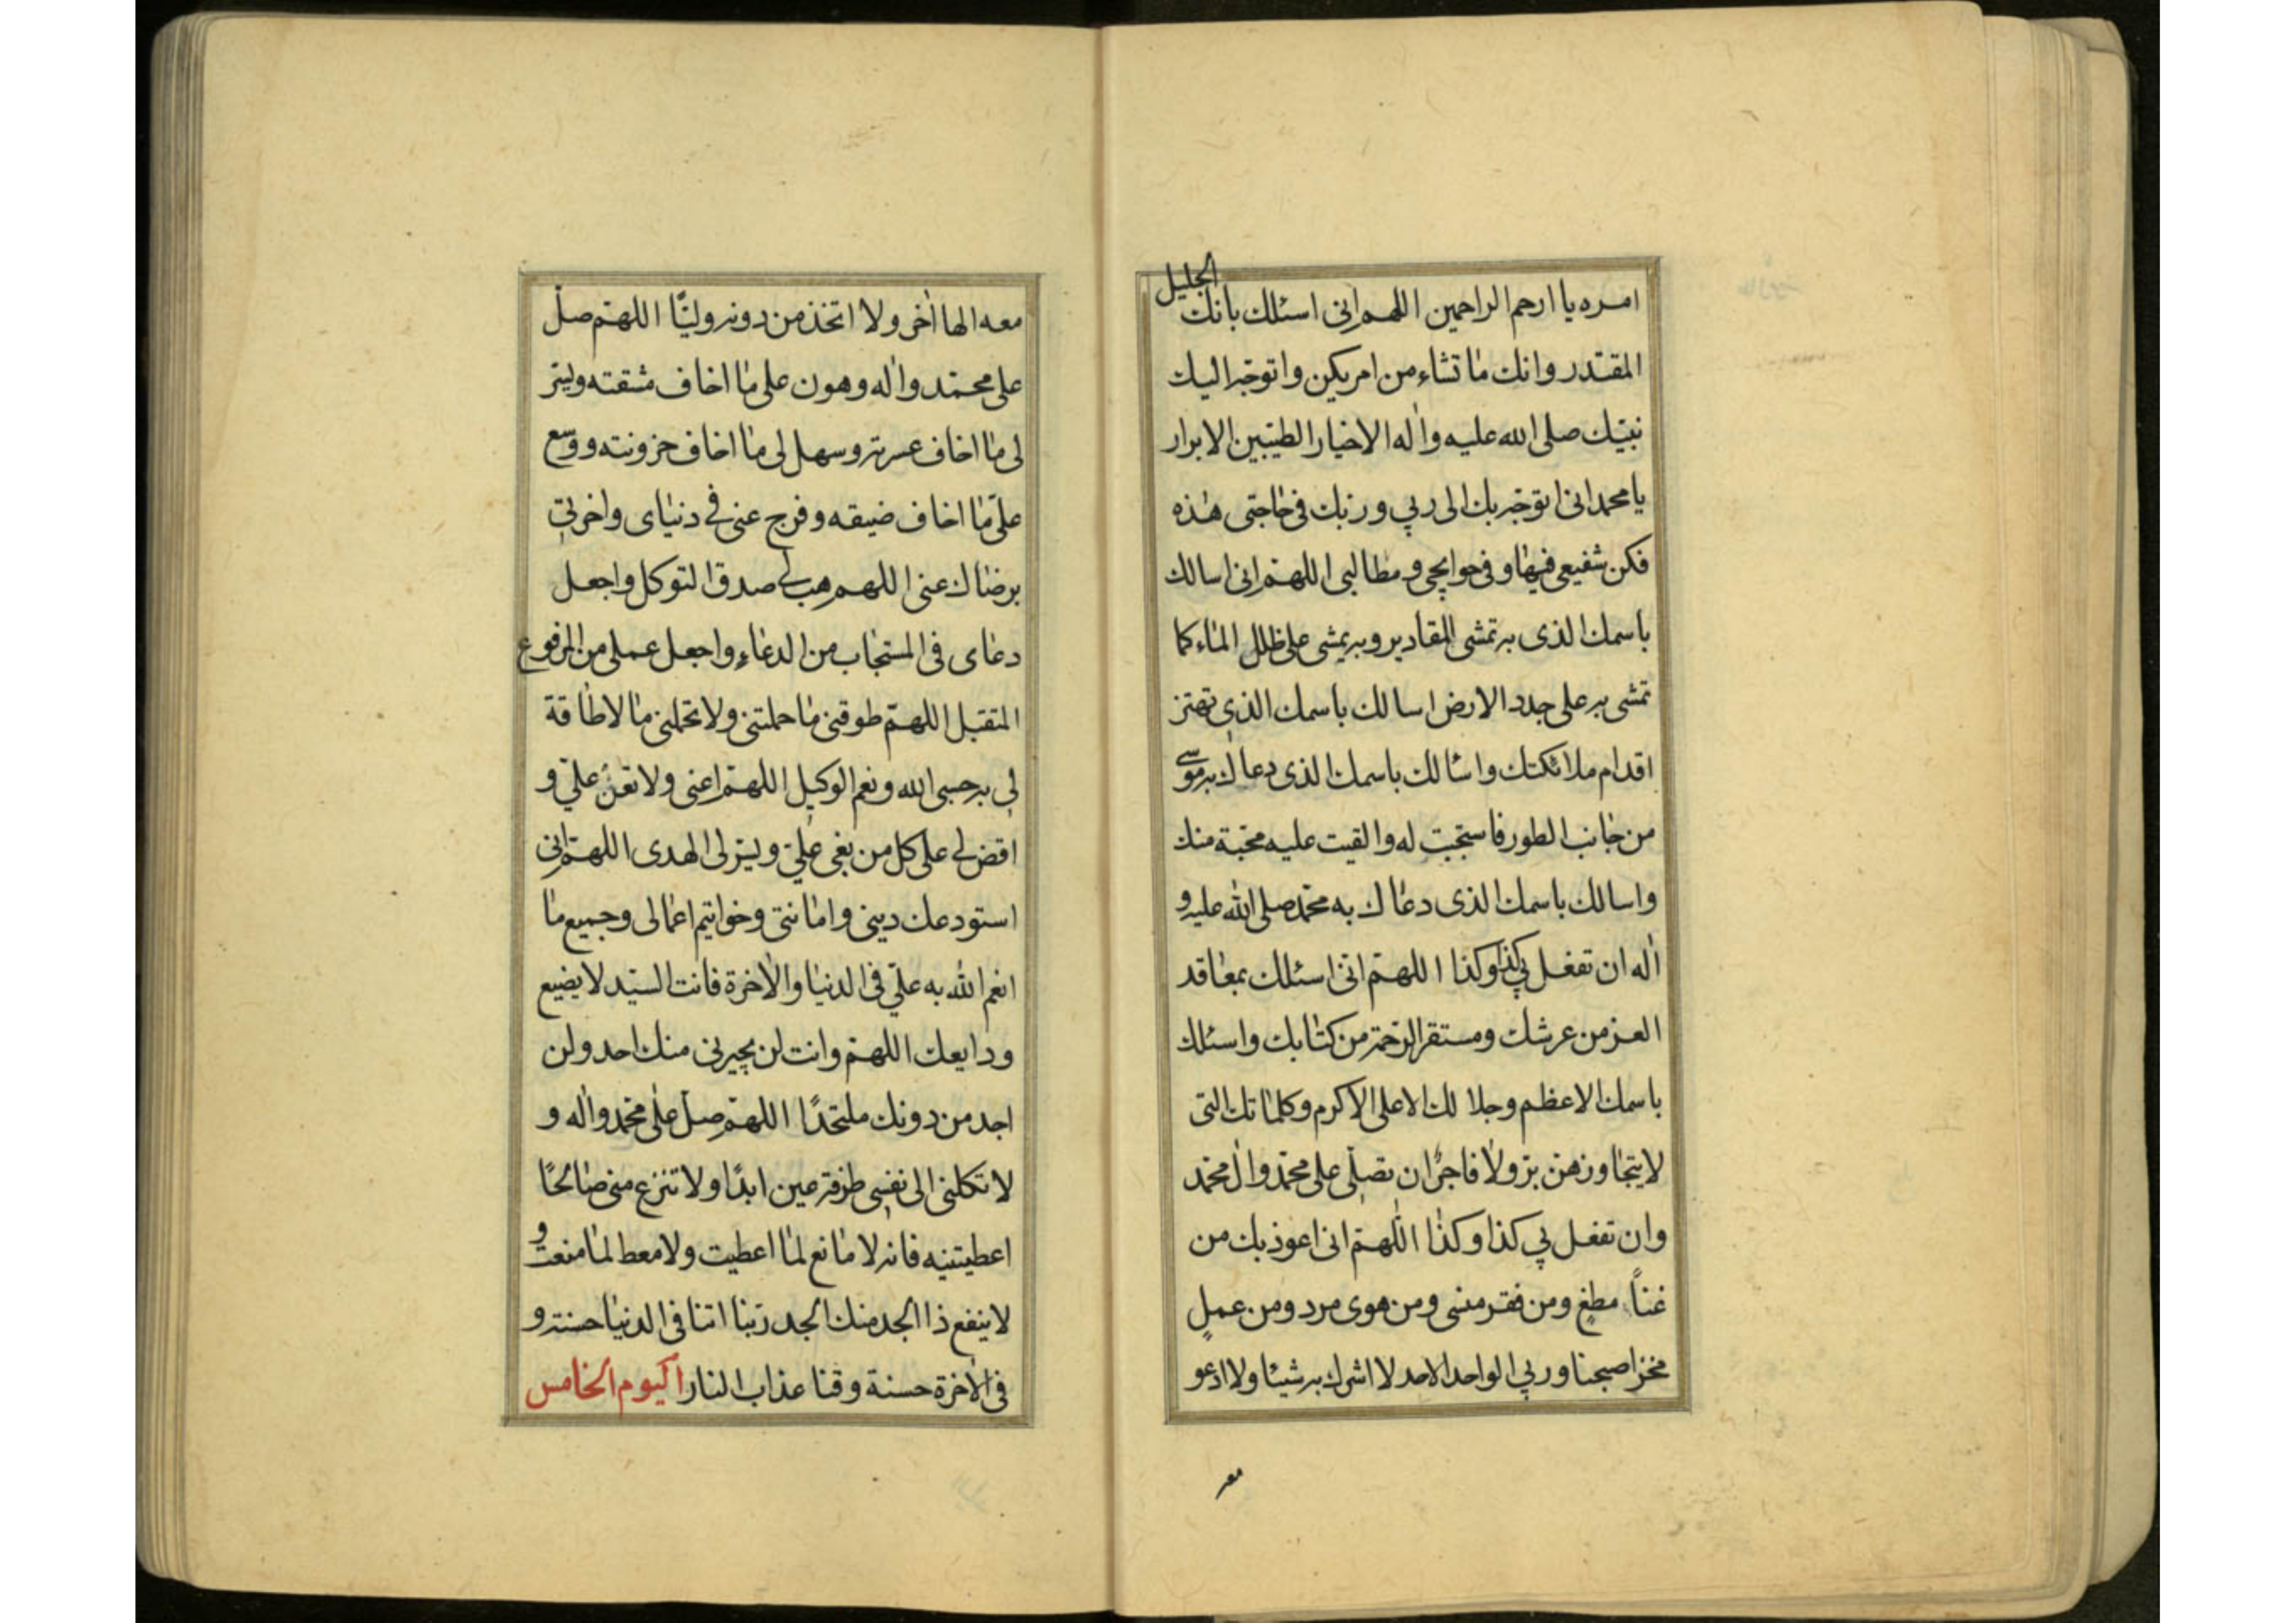 امره يا ارحم الراحمين اللهم انى اسئلك بانك الجليل
المقتدر وانك ما تشاء من امر يكن واتوجه اليك
نبيّك صلى الله عليه واله الاخيار الطيبين الابرار
يا محمد انى اتوجه بك الى ربي وربك فى حاجتى هذه
فكن شفيعى فيها وفى حوايجي و مطالبى اللهم انى اسالك
باسمك الذى به تمشى المقادير وبه يمشى على ظلل الماء كما
تمشى به على جدد الارض اسالك باسمك الذي تهتز
اقدام ملائكتك واسالك باسمك الذى دعاك به موسى
من جانب الطور فاستجبت له والقيت عليه محبة منك
واسالك باسمك الذى دعاك به محمد صلى الله عليه و
اله ان تفعل بي كذا وكذا اللهم انى اسئلك بمعاقد
العز من عرشك ومستقر الرحمة من كتابك واسئلك
باسمك الاعظم وجلالك الاعلى الاكرم وكلماتك التى
لا يتجاوزهن بر ولا فاجر ان تصلى على محمد وال محمد
وان تفعل بي كذا وكذا اللهم انى اعوذ بك من
غناً مطغٍ ومن فقر منسى ومن هوى مرد ومن عملٍ
مخز اصبحنا وربي الواحد الاحد لا اشرك به شيئا ولا ادعو
معه
معه الها اخر ولا اتخذ من دونه وليًّا اللهم صل
على محمد واله وهون على ما اخاف مشقته ويسر
لى ما اخاف عسرته وسهل لى ما اخاف حزونته ووسع
علىّ ما اخاف ضيقه وفرج عنى في دنياى واخرتي
برضاك عنى اللهم هب لي صدق التوكل واجعل
دعاى فى المستجاب من الدعاء واجعل عملى من المرفوع
المتقبل اللهم طوقنى ما حملتنى ولا تحملنى ما لا طاقة
لي به حسبى الله ونعم الوكيل اللهم اعنى ولا تعن عليّ و
اقض لي على كل من بغى عليّ ويسر لى الهدى اللهم انى
استودعك دينى وامانتى وخواتيم اعمالى وجميع ما
انعم الله به عليّ فى الدنيا والاخرة فانت السيد لا يضيع
ودايعك اللهم وانت لن يجيرنى منك احد ولن
اجد من دونك ملتحدًا اللهم صل على محمد واله و
لا تكلنى الى نفسى طرفة عين ابدًا ولا تنزع منى صالحًا
اعطيتنيه فانه لا مانع لما اعطيت ولا معط لما منعت و
لا ينفع ذا الجد منك الجد ربنا اتنا فى الدنيا حسنة و
فى الاخرة حسنة وقنا عذاب النار اليوم الخامس